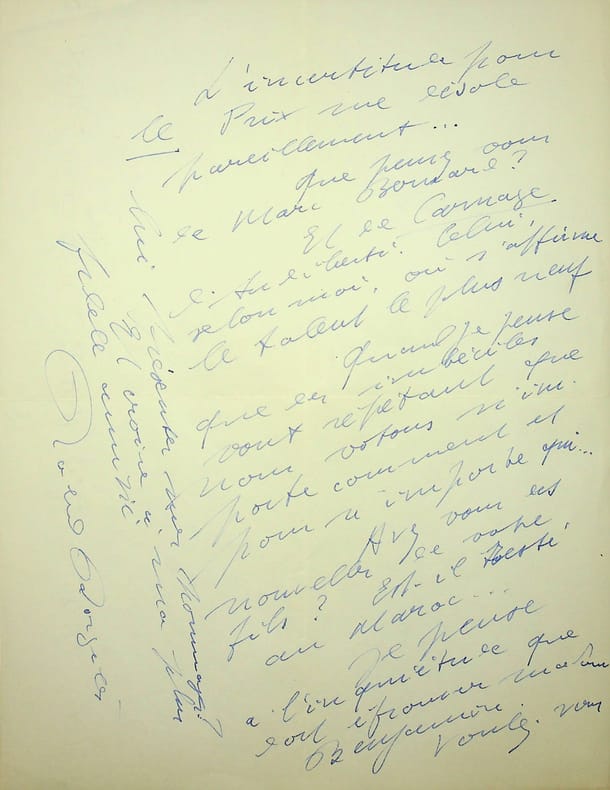 L'incertitude pour
le Prix me désole
pareillement...
Que pensez vous
de Marc Bernard?
Et de Carnage
d'Audiberti. Celui,
selon moi, où s'affirme
le talent le plus neuf
Quand je pense
que les imbéciles
vont répétant que
nous votons n'im-
porte comment et
pour n'importe qui...
Avez vous des
nouvelles de votre
fils? Est-il resté
au Maroc...
Je pense
à l'inquiétude que
doit éprouver madame
Benjamin. Voulez-vous
lui présenter mes hommages
Et croire à ma plus
fidèle amitié
Roland Dorgelès